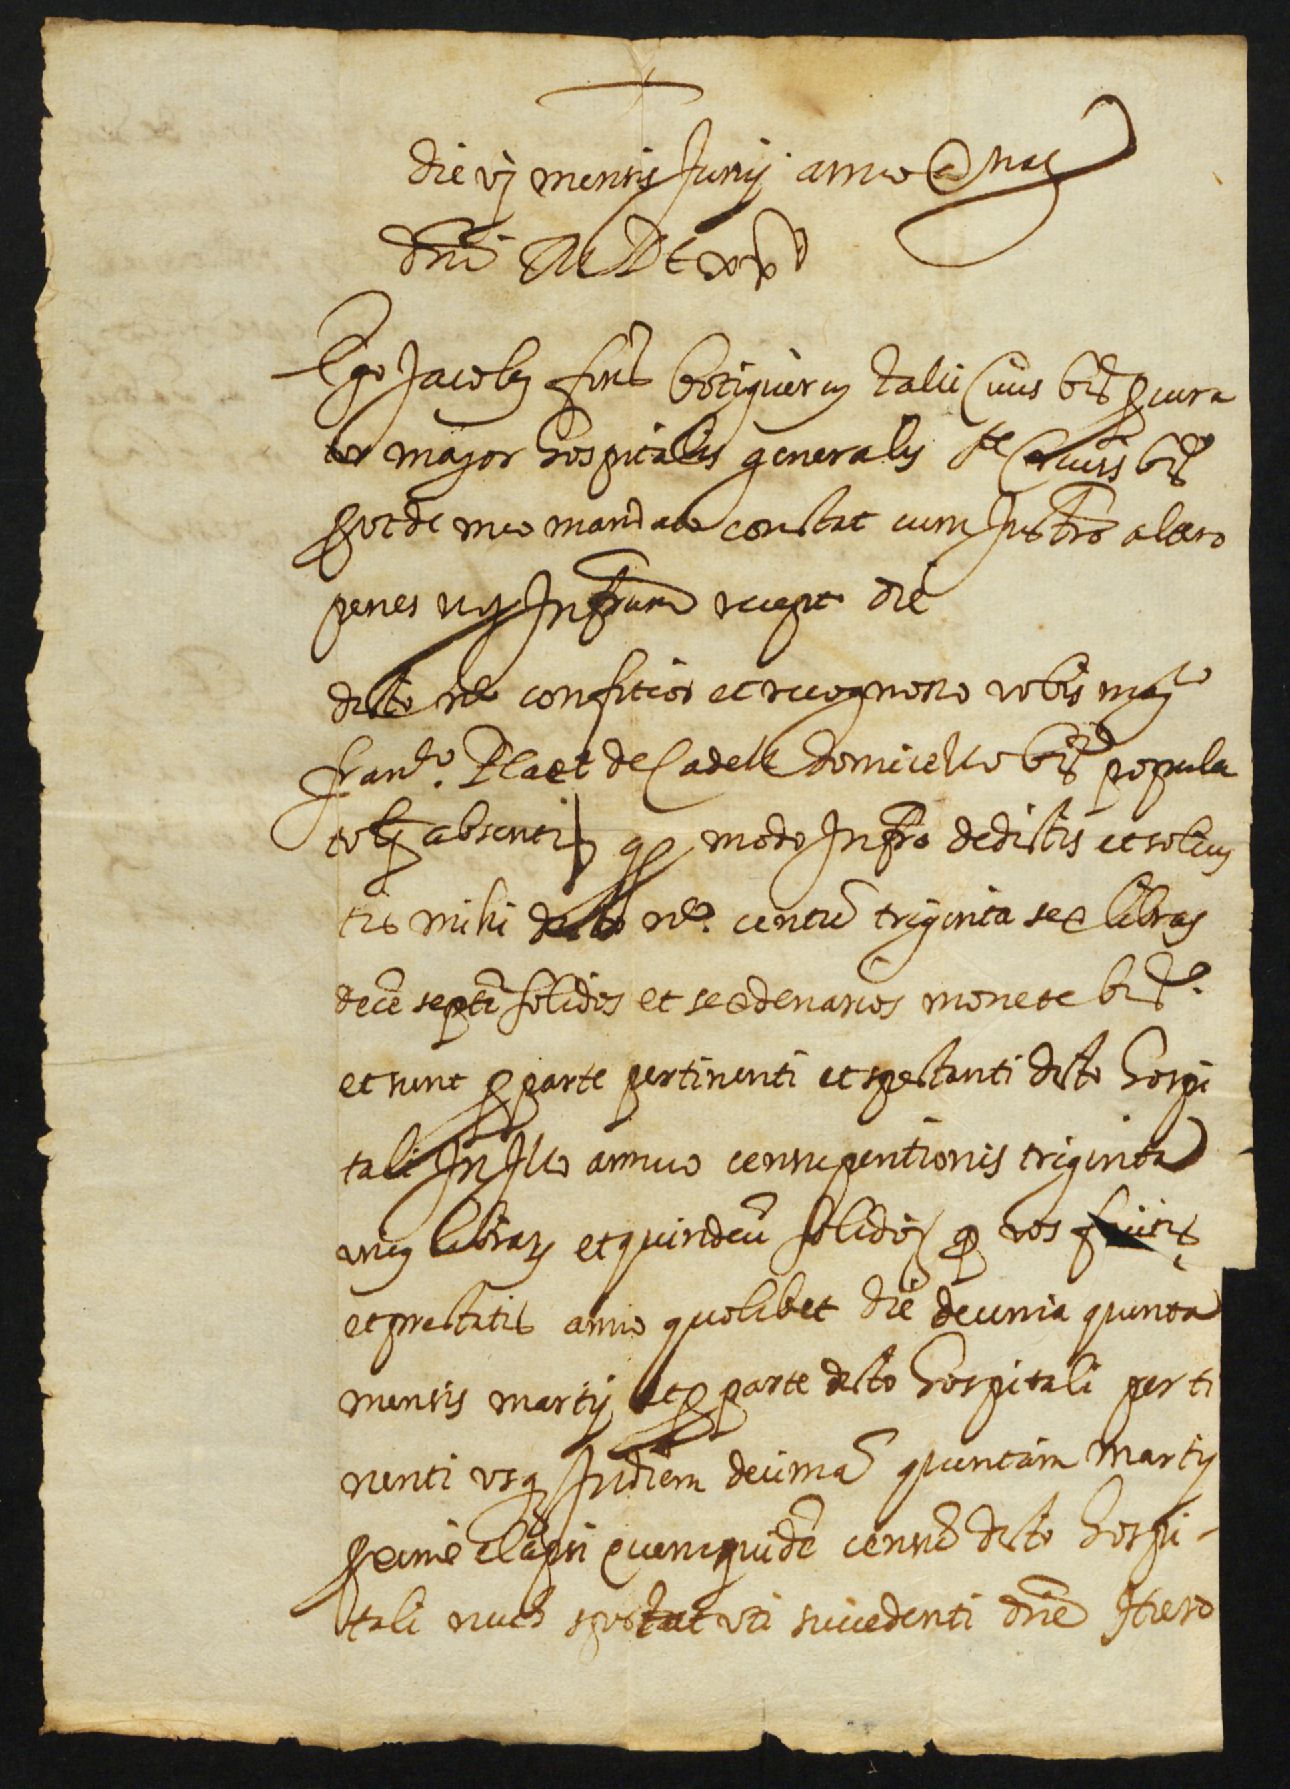 die vj mensis Junij anno a Nat
dni M D L xx v
Ego Jacobus font botiguerius tallii Civis bñe procura
tor major hospitalis generalis ste Crucis bñe
prout de meo mandato constat cum Instro altero
penes nots Infrum recept die
dicto ne confiteor et recognosco vobis magco
Franco. Pla et de Cadell domicello bñe popula
to licet absenti quod modo Infro dedistis et solvis
tis mihi dicto ne. centu triginta sex libras
dece septe solidos et sex denarios monete bñe.
et sunt pro parte pertinenti et spectanti dicto hospi
tali In Illo annuo censu pentionis triginta
unius librarum et quindecim solidorum quod vos facitis
et prestatis anno quolibet die decima quinta
mensis martij et pro parte dicto hospitali perti
nenti usq In diem decima quintam martij
proxime elapsi quemquide censu dicto hospi-
tali nuch spectat uti succedenti dne